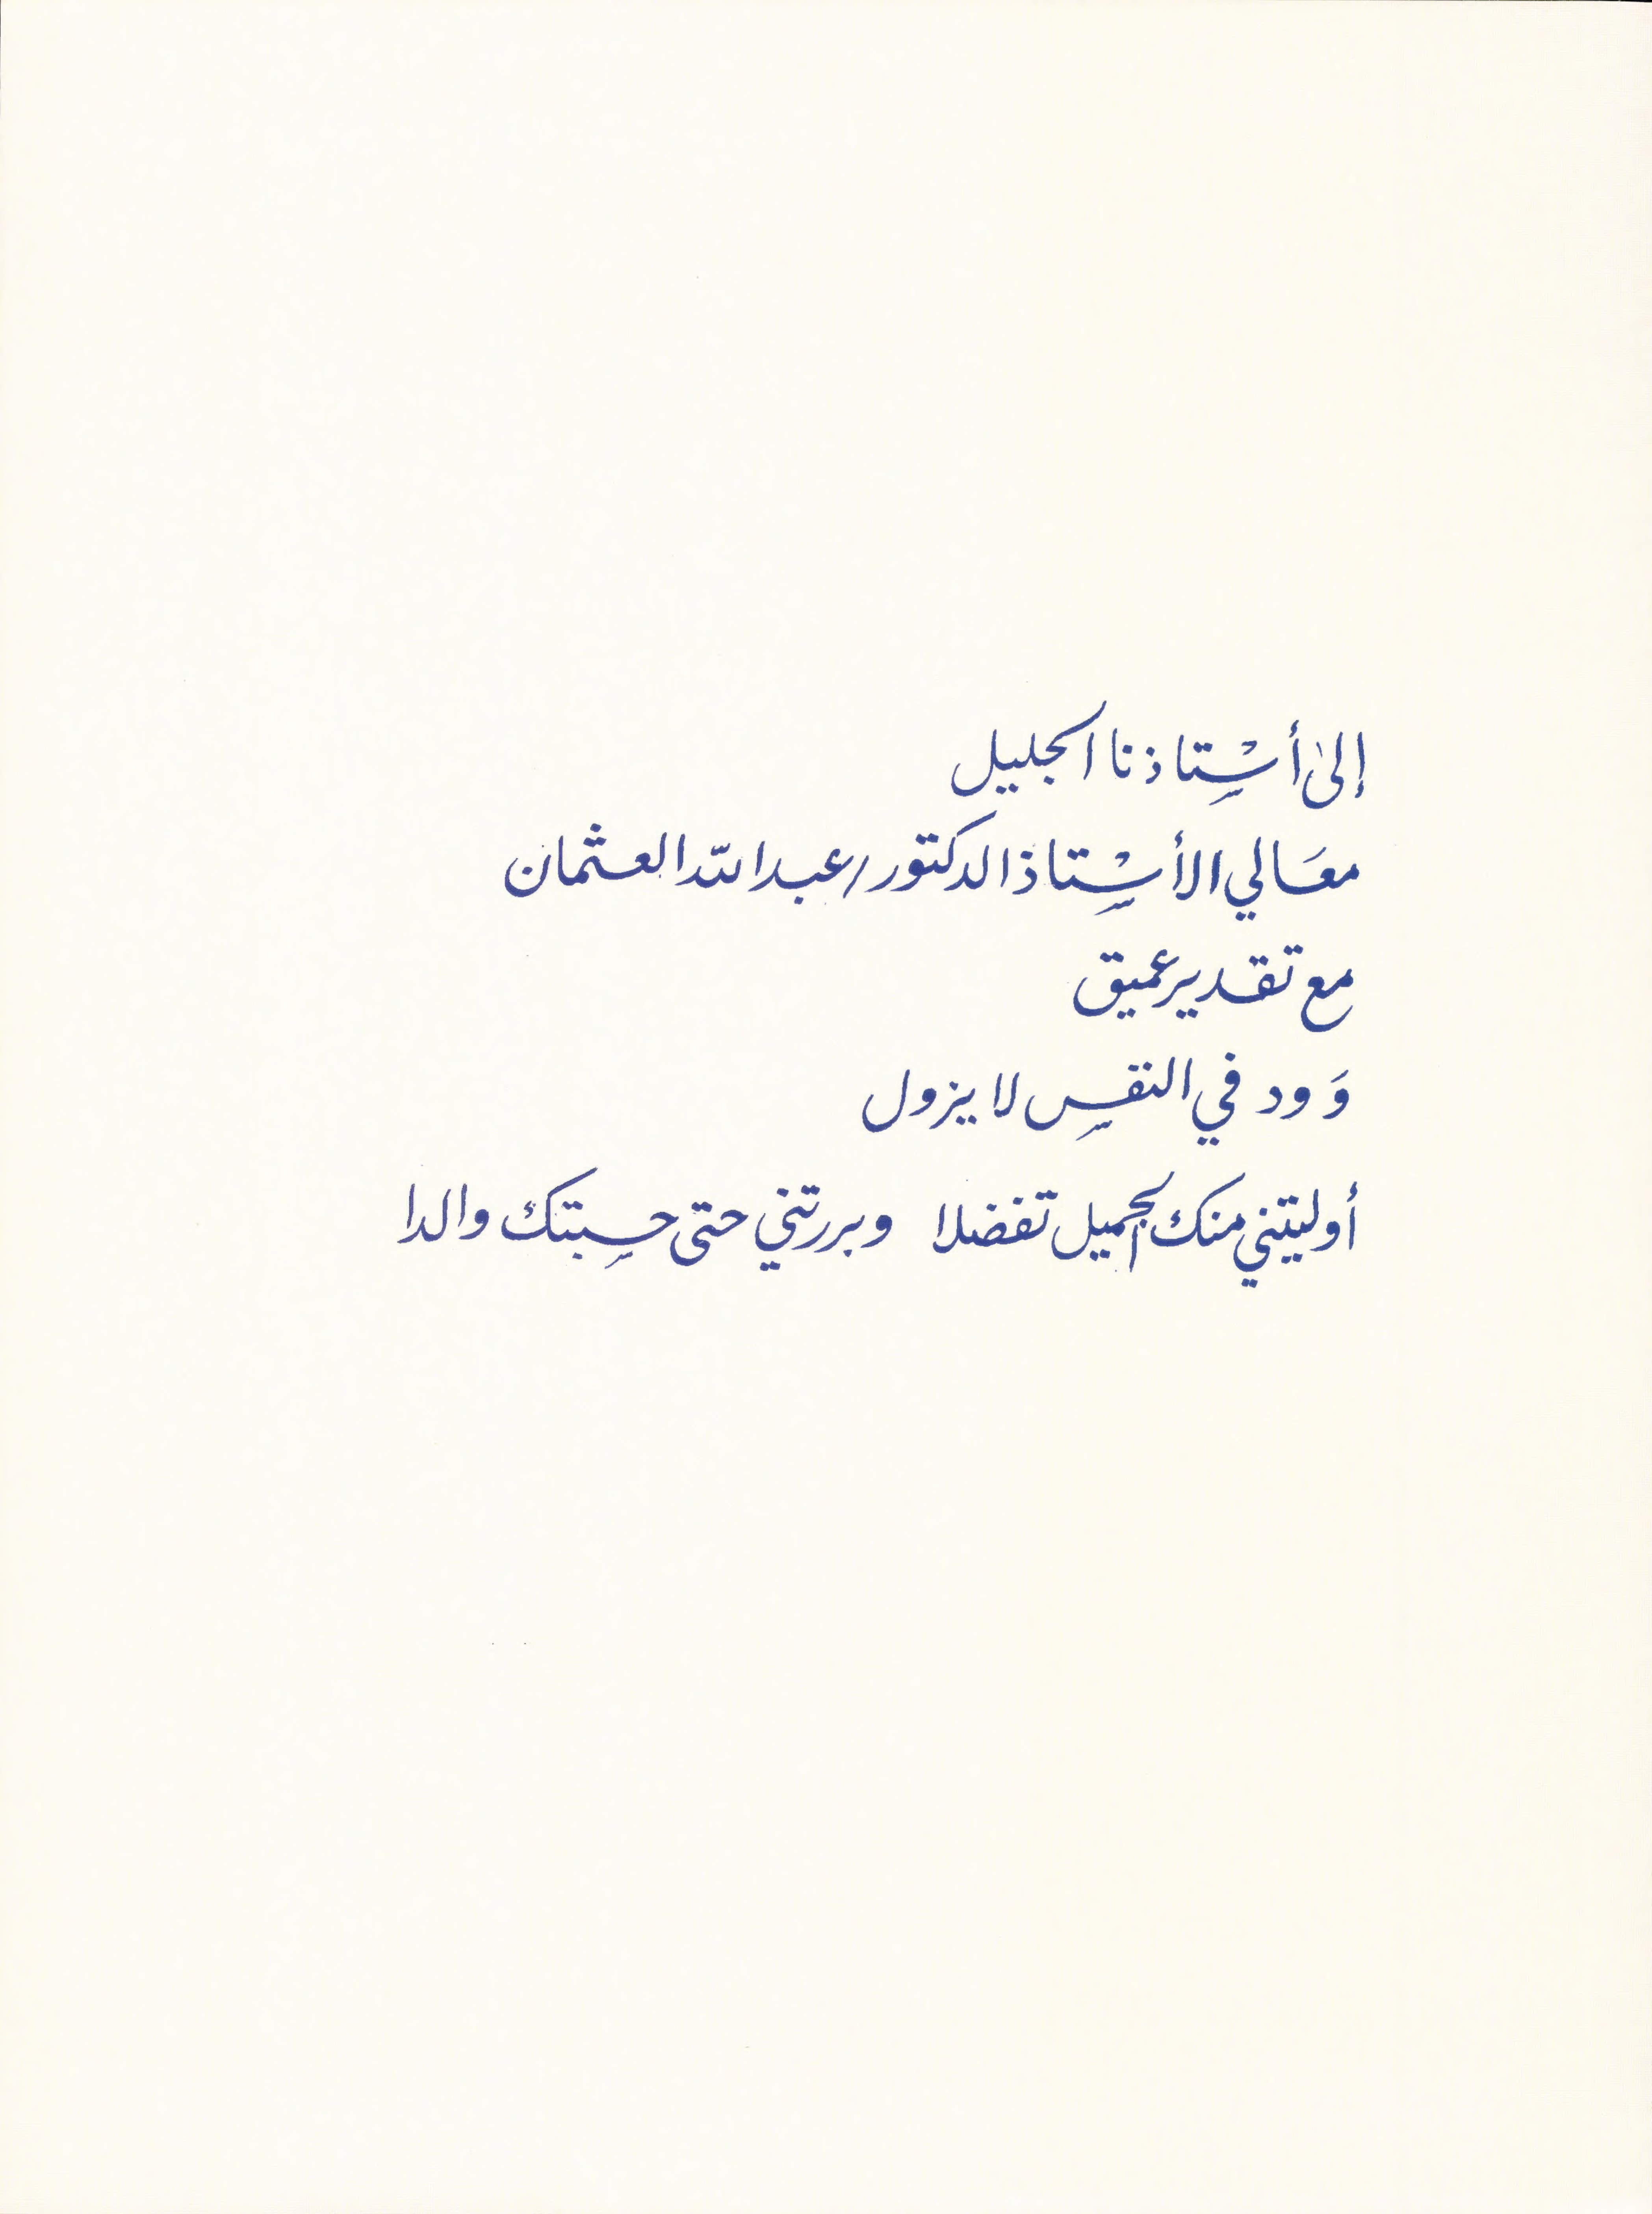 إلى أسْتاذنا الجليل
معَالي الأسْتاذ الدكتور/عبدالله العثمان
مع تقدير عميق
وَود في النفس لا يزول
أوليتني منك الجميل تفضلا وبررتني حتى حسبتك والدا